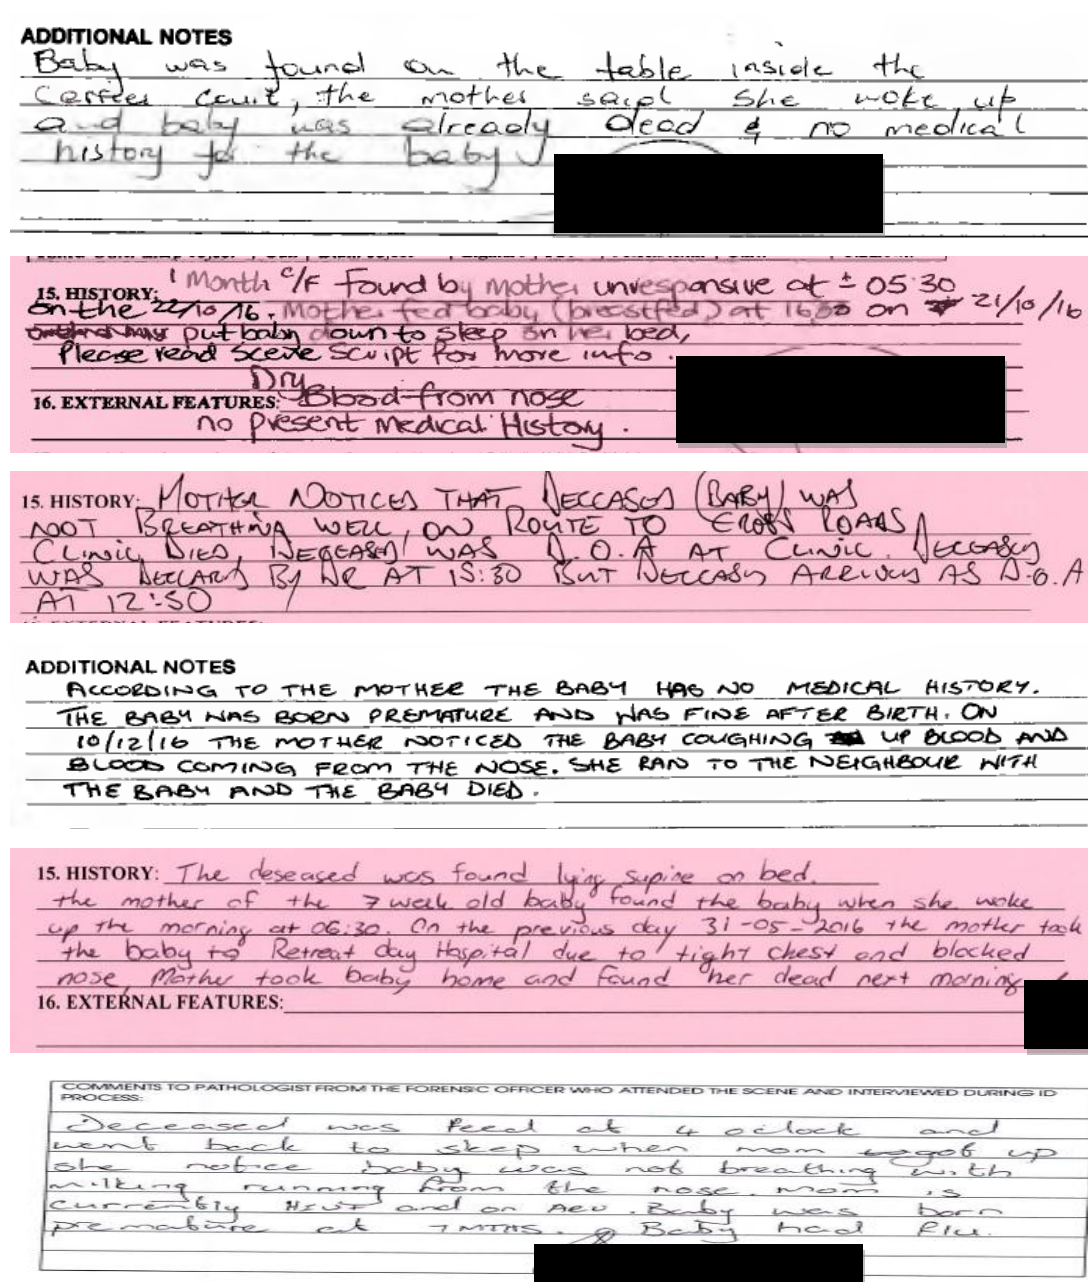 ADDITIONAL NOTES
Baby was found on the table inside the
court, the mother said she woke up
and baby was already dead & no medical
history for the baby
15. HISTORY: 1 Month C/F Found by mother unresponsive at ± 05:30
on the 22/10/16. Mother fed baby (breastfed) at 16:30 on 21/10/16
put baby down to sleep on her bed,
Please read Scene Script for more info.
Dry
16. EXTERNAL FEATURES: Blood from nose
no present Medical History.
15. HISTORY: MOTHER NOTICES THAT DECEASED (BABY) WAS
NOT BREATHING WELL, ON ROUTE TO CROSS ROADS
CLINIC DIED, DECEASED WAS D.O.A AT CLINIC. DECEASED
WAS DECLARED BY DR AT 15:30 BUT DECEASED ARRIVED AS D.O.A
AT 12:50
ADDITIONAL NOTES
ACCORDING TO THE MOTHER THE BABY HAS NO MEDICAL HISTORY.
THE BABY WAS BORN PREMATURE AND WAS FINE AFTER BIRTH. ON
10/12/16 THE MOTHER NOTICED THE BABY COUGHING UP BLOOD AND
BLOOD COMING FROM THE NOSE. SHE RAN TO THE NEIGHBOUR WITH
THE BABY AND THE BABY DIED.
15. HISTORY: The deseased was found lying supine on bed.
the mother of the 7 week old baby found the baby when she woke
up the morning at 06:30. On the previous day 31-05-2016 the mother took
the baby to Retreat day Hospital due to tight chest and blocked
nose, Mother took baby home and found her dead next morning
16. EXTERNAL FEATURES:
COMMENTS TO PATHOLOGIST FROM THE FORENSIC OFFICER WHO ATTENDED THE SCENE AND INTERVIEWED DURING ID
PROCESS:
Deceased was feed at 4 oclock and
went back to sleep when mom got up
she notice baby was not breathing with
milking running from the nose. mom is
currently HIV+ and on ARV. Baby was born
premature at 7MTHS. Baby had flu.